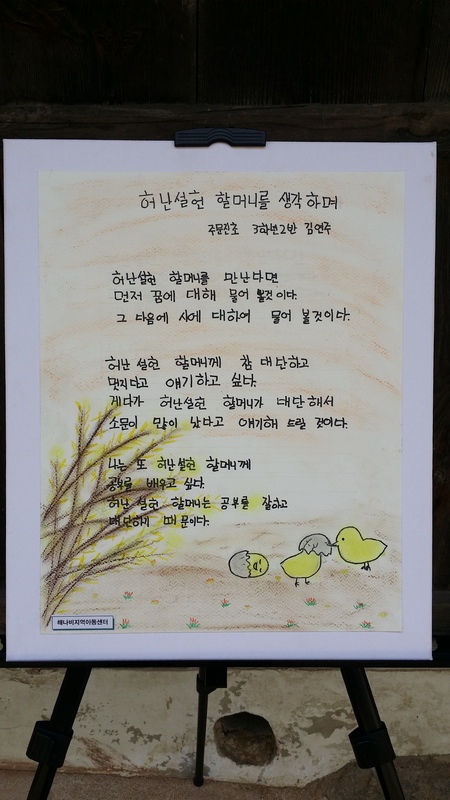 허난설헌 할머니를 생각하며
주문진초 3학년2반 김연주
허난설헌 할머니를 만난다면
먼저 꿈에 대해 물어 볼것이다.
그 다음에 시에 대하여 물어 볼것이다.
허난설헌 할머니께 참 대단하고
멋지다고 얘기하고 싶다.
게다가 허난설헌 할머니가 대단해서
소문이 많이 났다고 얘기해 드릴 것이다.
나는 또 허난설헌 할머니께
공부를 배우고 싶다.
허난설헌 할머니는 공부를 잘하고
대단하기 때문이다.
해나비지역아동센터